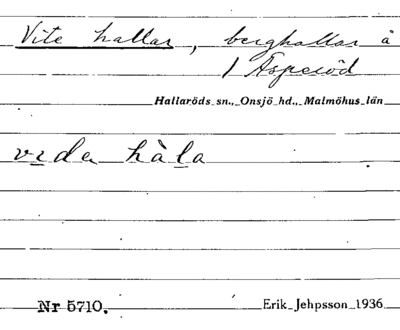 Vite hallar, berghallar å
1 Asperöd
Hallaröds sn., Onsjö hd., Malmöhus län
vida hàla
Nr 5710. Erik Jehpsson 1936